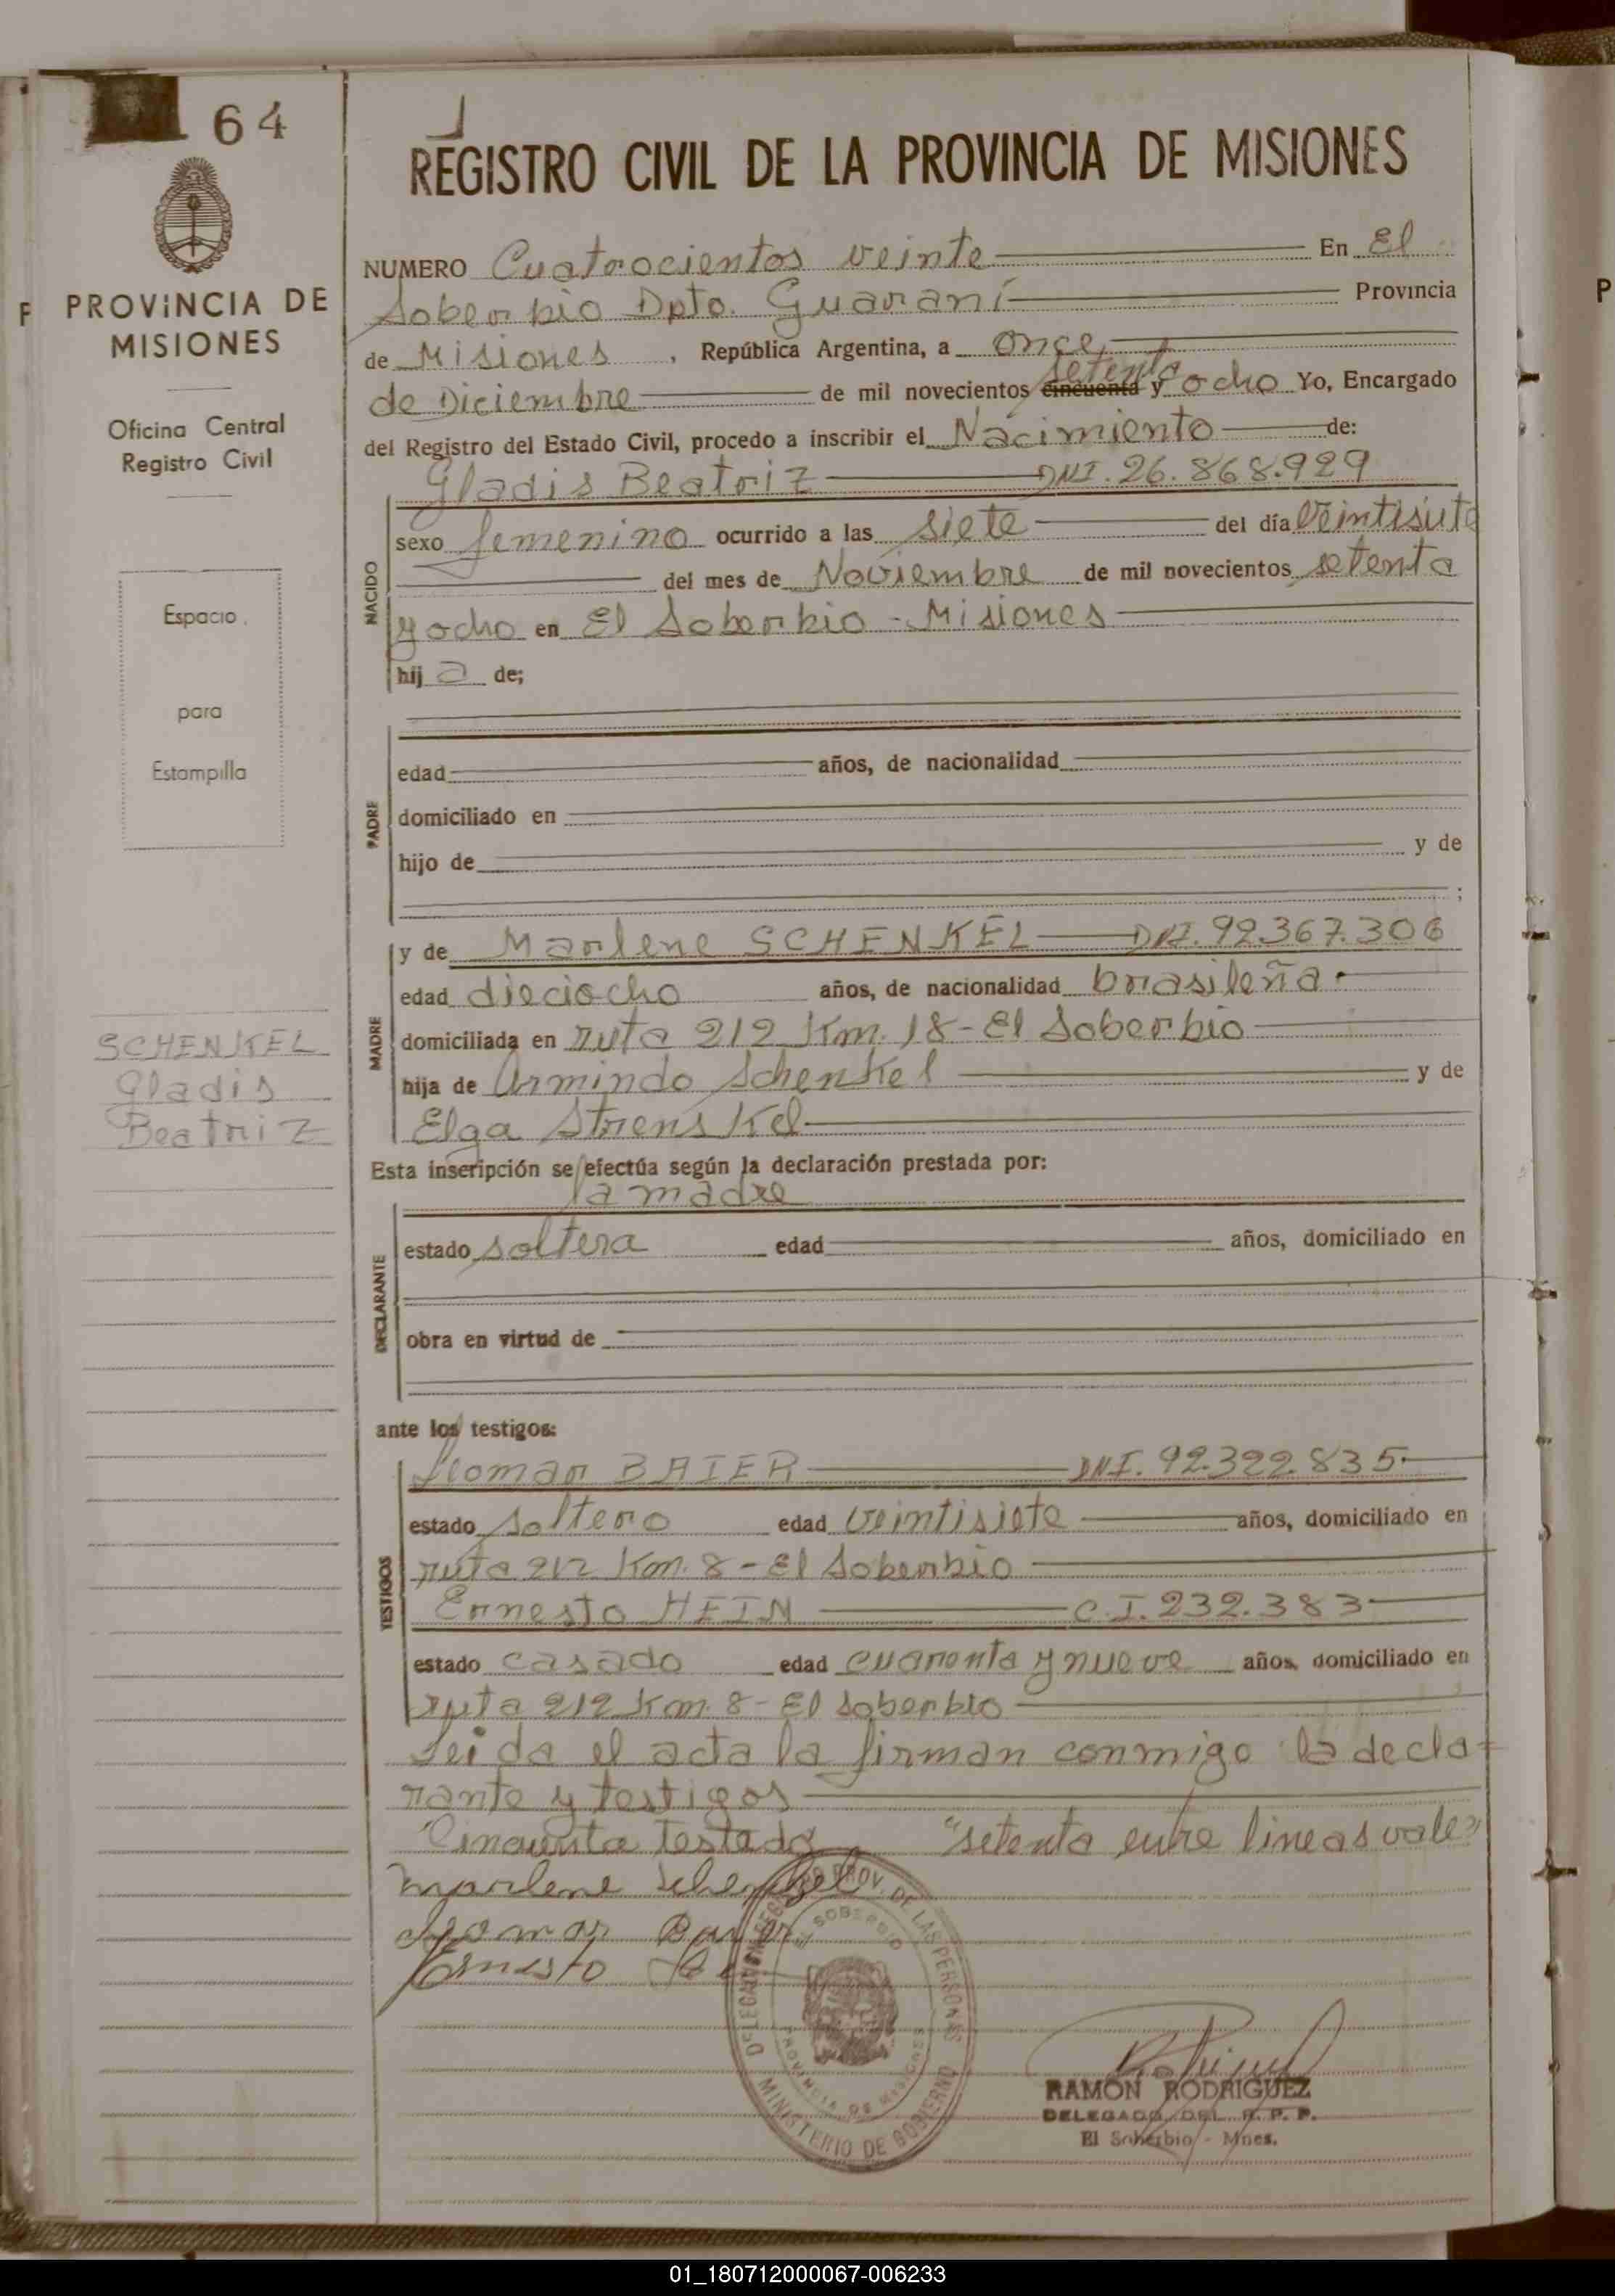 64
REGISTRO CIVIL DE LA PROVINCIA DE MISIONES
PROVINCIA DE
MISIONES
Oficina Central
Registro Civil
Espacio
para
Estampilla
SCHENKEL
Gladis
Beatriz
NUMERO Cuatrocientos veinte En El
Soberbio Dpto. Guaraní Provincia
de Misiones, República Argentina, a once
setenta
de Diciembre de mil novecientos cincuenta y ocho Yo, Encargado
del Registro del Estado Civil, procedo a inscribir el Nacimiento de:
Gladis Beatriz DNI. 26.868.929
NACIDO
sexo femenino ocurrido a las siete del día veintisiete
del mes de Noviembre de mil novecientos setenta
y ocho en El Soberbio - Misiones
hij a de;
PADRE
edad años, de nacionalidad
domiciliado en
hijo de y de
;
MADRE
y de Marlene SCHENKEL DNI. 92.367.306
edad dieciocho años, de nacionalidad brasileña.
domiciliada en ruta 212 Km. 18 - El Soberbio
hija de Armindo Schenkel y de
Elga Strenskel
Esta inscripción se efectúa según la declaración prestada por:
la madre
DECLARANTE
estado soltera edad años, domiciliado en
obra en virtud de
ante los testigos:
TESTIGOS
BAIER DNI. 92.322.835.
estado soltero edad veintisiete años, domiciliado en
ruta 212 Km. 8 - El Soberbio
Ernesto HEIN C.I. 232.383
estado casado edad cuarenta y nueve años, domiciliado en
ruta 212 Km. 8 - El Soberbio
Leida el acta la firman conmigo la decla-
rante y testigos
Cincuenta testado "setenta entre lineas vale"
Marlene Schenkel
Ernesto
EL SOBERBIO
PROVINCIA DE MISIONES
MINISTERIO DE GOBIERNO
RAMON RODRIGUEZ
DELEGADO DEL R. P. P.
El Soberbio - Mnes.
01_180712000067-006233